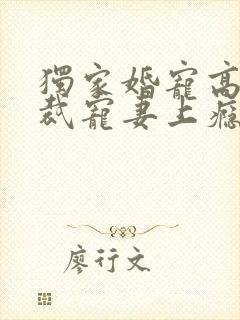 獨家婚寵高
裁寵妻上癮
廖行文